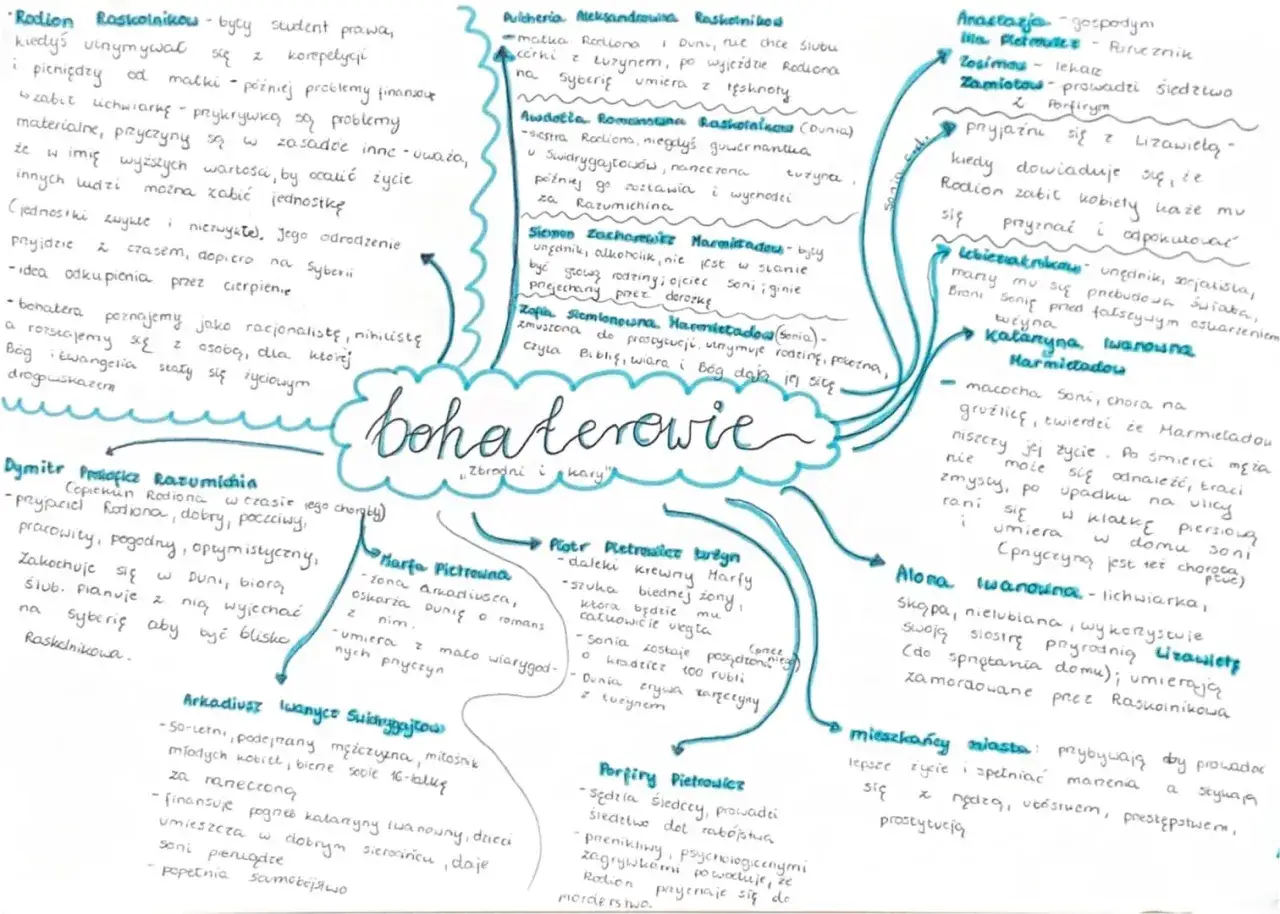 Rodion Raskolnikow - były student prawa,
kiedyś utrzymywał się z korepetycji
i pieniędzy od matki - później problemy finansowe
zabił lichwiarkę - przykrywką są problemy
materialne, przyczyny są w zasadzie inne - uważa,
że w imię wyższych wartości, by ocalić życie
innych ludzi można zabić jednostkę
(jednostki zwykłe i niezwykłe). Jego odrodzenie
przyjdzie z czasem, dopiero na Syberii
- idea odkupienia przez cierpienie
- bohatera poznajemy jako racjonalistę, nihilistę
a rozstajemy się z osobą, dla której
Bóg i Ewangelia stały się życiowym
drogowskazem
Pulcheria Aleksandrowna Raskolnikow
- matka Rodiona i Duni, nie chce ślubu
córki z Łużynem, po wyjeździe Rodiona
na Syberię umiera z tęsknoty
Awdotia Romanowna Raskolnikow (Dunia)
- siostra Rodiona, niegdyś guwernantka
u Swidrygajłowów, narzeczona Łużyna,
później go zostawia i wychodzi
za Razumichina
Siemion Zacharewicz Marmieładow - były
urzędnik, alkoholik, nie jest w stanie
być głową rodziny; ojciec Soni; ginie
przejechany przez dorożkę
Zofia Siemionowna Marmieładow (Sonia) -
zmuszona do prostytucji, utrzymuje rodzinę, pokorna,
czyta Biblię, wiara i Bóg dają jej siłę
Anastazja - gospodyni
Ilia Pietrowicz - Porucznik
Zosimow - lekarz
Zamiotow - prowadzi śledztwo
z Porfirym
Sonia
przyjaźni się z Lizawietą -
kiedy dowiaduje się, że
Rodion zabił kobiety każe mu
się przyznać i odpokutować
Lebieziatnikow - urzędnik, socjalista,
marzy mu się przebudowa świata,
Broni Sonię przed fałszywym oskarżeniem
Łużyna
Katarzyna Iwanowna
Marmieładow
- macocha Soni, chora na
gruźlicę, twierdzi że Marmieładow
niszczy jej życie. Po śmierci męża
nie może się odnaleźć, traci
zmysły, po upadku na ulicy
rani się w klatkę piersiową
i umiera w domu Soni
(przyczyną jest też choroba
płuc)
bohaterowie
"Zbrodni i kary"
Dymitr Prokoficz Razumichin
(opiekun Rodiona w czasie jego choroby)
- przyjaciel Rodiona, dobry, poczciwy,
pracowity, pogodny, optymistyczny,
Zakochuje się w Duni, biorą
ślub. Planuje z nią wyjechać
na Syberię aby być blisko
Raskolnikowa.
Marfa Pietrowna
- żona Arkadiusza,
oskarża Dunię o romans
z nim.
- umiera z mało wiarygod-
nych przyczyn
Piotr Pietrowicz Łużyn
- daleki krewny Marfy
- szuka biednej żony,
która będzie mu
całkowicie uległa
- Sonia zostaje posądzona (przez niego)
o kradzież 100 rubli
- Dunia zrywa zaręczyny
z Łużynem
Alona Iwanowna - lichwiarka,
skąpa, nielubiana, wykorzystuje
swoją siostrę przyrodnią Lizawietę
(do sprzątania domu); umierają
zamordowane przez Raskolnikowa
Arkadiusz Iwanycz Swidrygajłow
- 50-letni, podejrzany mężczyzna, miłośnik
młodych kobiet, bierze sobie 16-latkę
za narzeczoną
- finansuje pogrzeb Katarzyny Iwanowny, dzieci
umieszcza w dobrym sierocińcu, daje
Soni pieniądze
- popełnia samobójstwo
Porfiry Pietrowicz
- sędzia śledczy, prowadzi
śledztwo dot. zabójstwa
- przenikliwy, psychologicznymi
zagrywkami powoduje, że
Rodion przyznaje się do
morderstwa.
mieszkańcy miasta: przybywają aby prowadzić
lepsze życie i spełniać marzenia a stykają
się z nędzą, ubóstwem, przestępstwem,
prostytucją